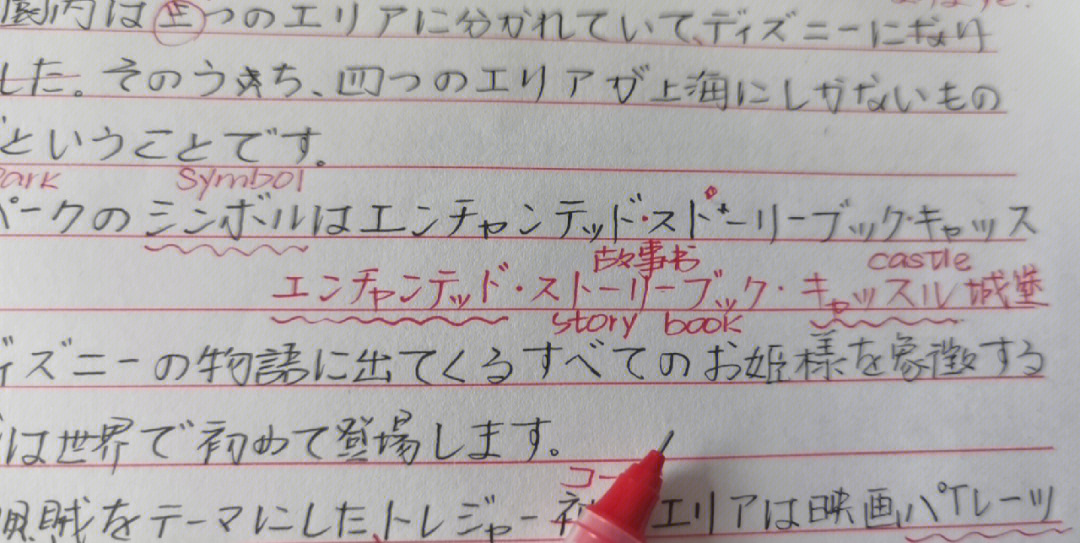 園内は七つのエリアに分かれていて、ディズニーになり
した。そのうち、四つのエリアが上海にしかないもの
ということです。
Park symbol
パークのシンボルはエンチャンテッド・ストーリーブック・キャッス
故事书 castle
エンチャンテッド・ストーリーブック・キャッスル 城堡
story book
ィズニーの物語に出てくるすべてのお姫様を象徴する
は世界で初めて登場します。
コー
賊をテーマにした、トレジャー エリアは映画、パイレーツ